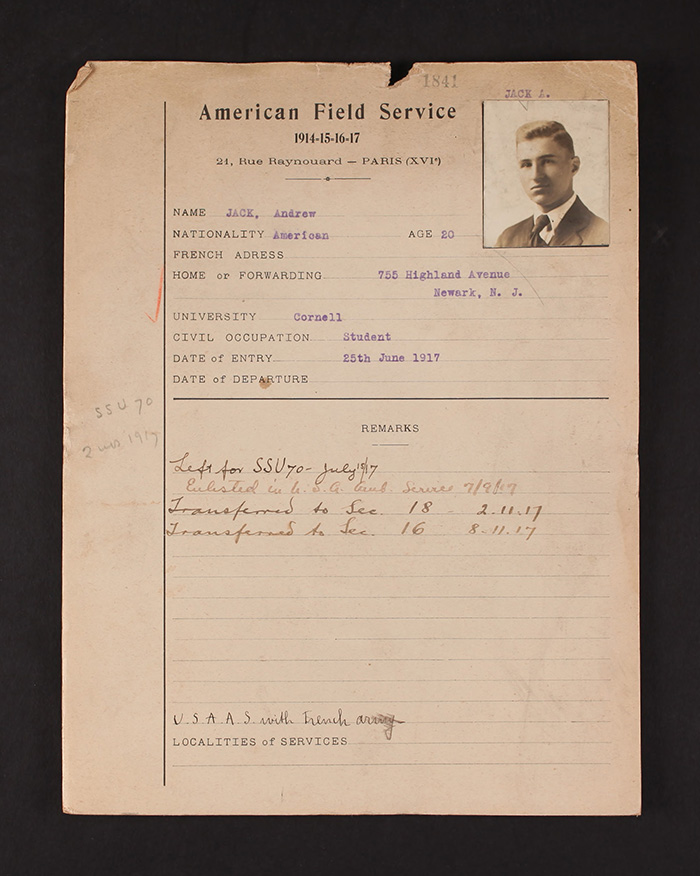 1841
JACK A.
American Field Service
1914-15-16-17
21, Rue Raynouard — PARIS (XVIᵉ)
NAME JACK, Andrew
NATIONALITY American AGE 20
FRENCH ADRESS
HOME or FORWARDING 755 Highland Avenue
Newark, N. J.
UNIVERSITY Cornell
CIVIL OCCUPATION Student
DATE of ENTRY 25th June 1917
DATE of DEPARTURE
SSU 70
2 1917
REMARKS
Left for SSU 70 - July 17
Enlisted in U.S.A. Amb. Service 7/9/17
Transferred to Sec. 18 - 2.11.17
Transferred to Sec. 16 8-11.17
U.S.A.A.S. with French army
LOCALITIES of SERVICES